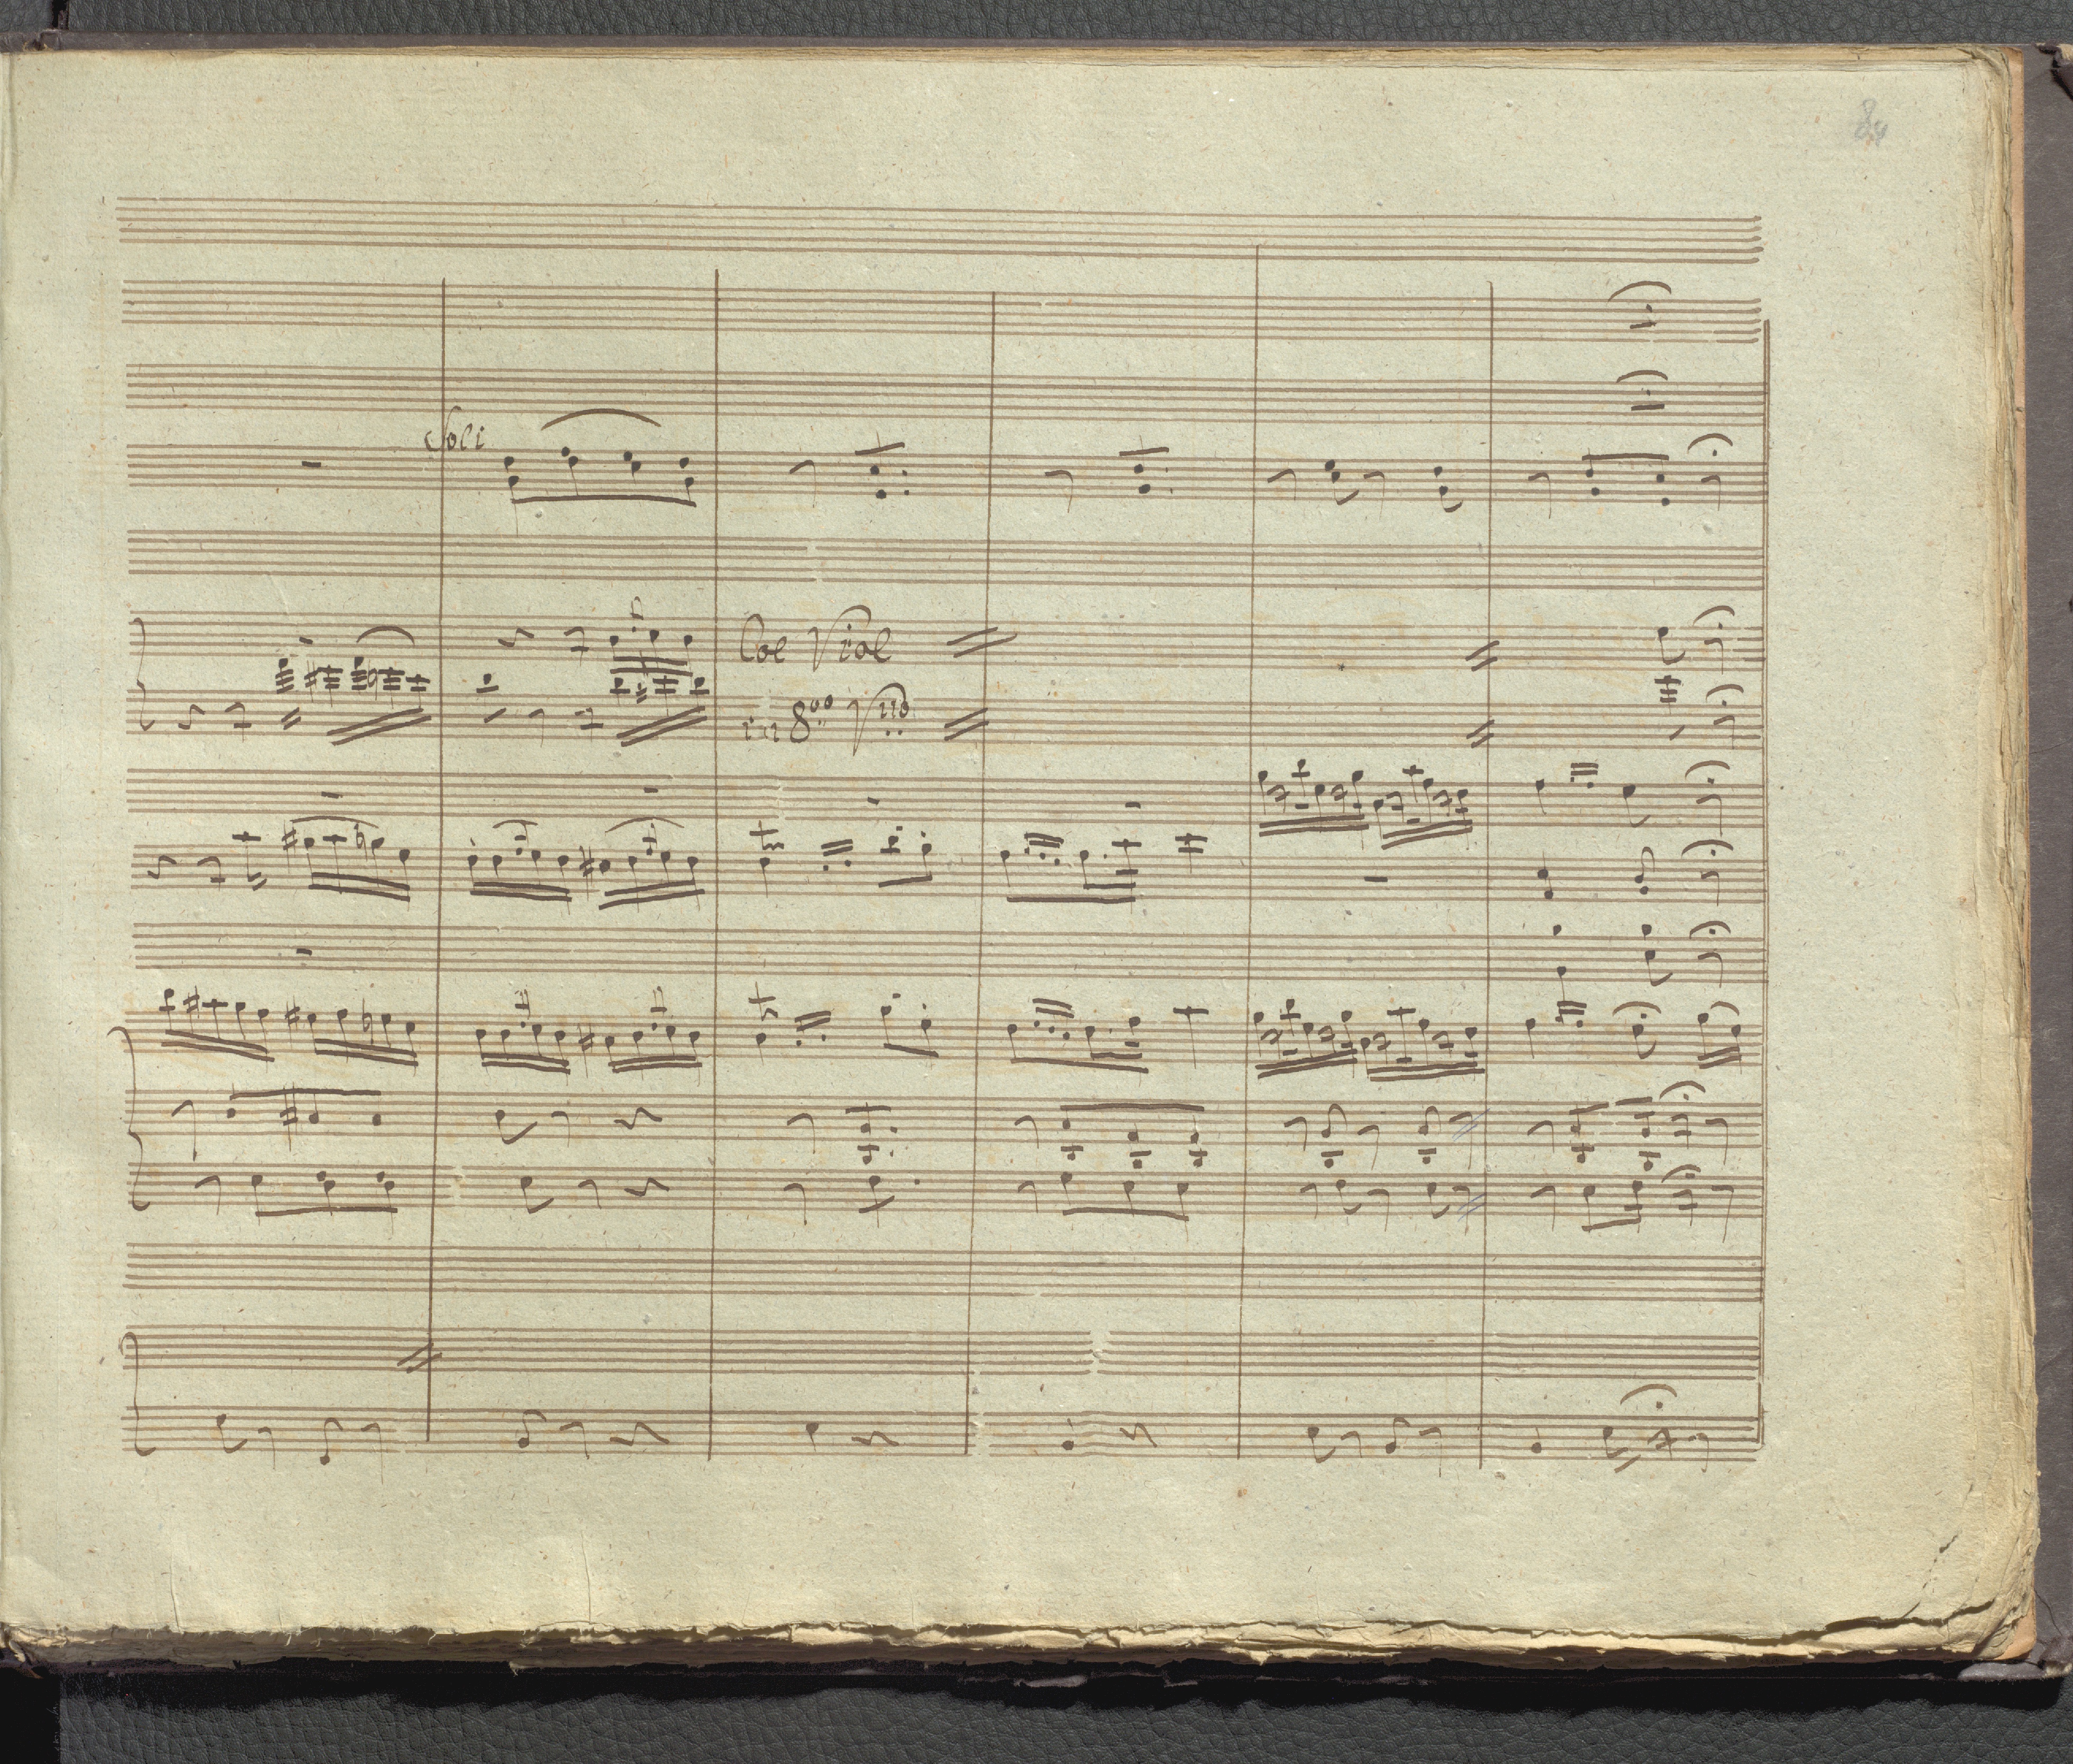 Soli
Col Viol
in 8va Vno